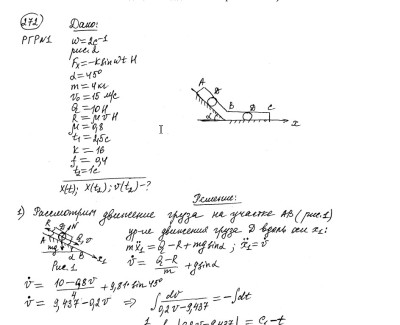 272
Дано:
РГР№1
ω=2c⁻¹
рис. 2
Fx=-ksinωt H
α=45°
m=4кг
v₀=15 м/с
Q=10H
R=μvH
μ=0,8
t₁=2,5c
k=16
f=0,4
t₂=1c
x(t); x(t₂); v(t₂)-?
A
D
B
D
C
α
x
Решение:
1) Рассмотрим движение груза на участке AB (рис.1)
ур-ие движения груза D вдоль оси x₁:
mẍ₁=Q-R+mgsinα; ẍ₁=v̇
v̇=(Q-R)/m+gsinα
R
N
D
A
Q, v
mg
α
B
x₁
Рис. 1
v̇=(10-0,8v)/4+9,81·sin45°
v̇=9,437-0,2v ⇒ ∫dv/(0,2v-9,437)=-∫dt
=C₁-t